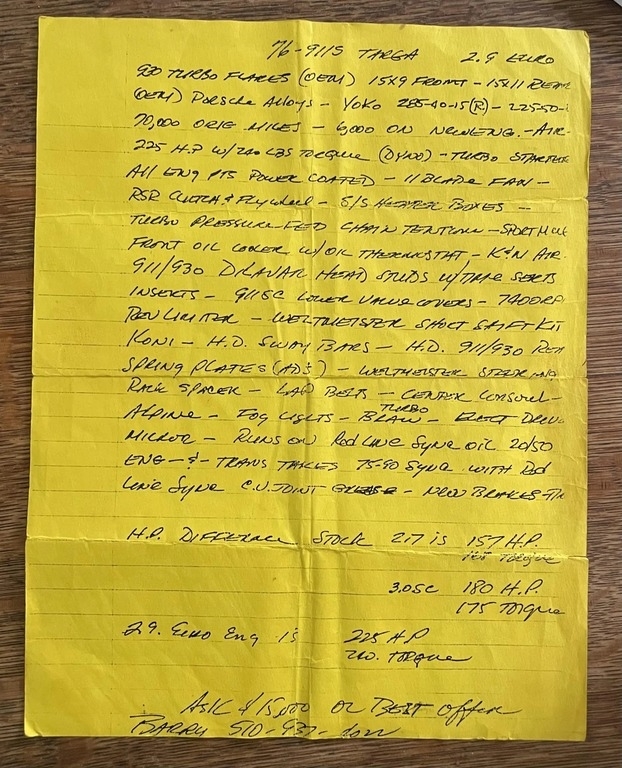 76-911S TARGA 2.9 EURO
930 TURBO FLARES (OEM) 15X9 FRONT - 15X11 REAR
(OEM) PORSCHE ALLOYS - YOKO 285-40-15(R) - 225-50-
70,000 ORIG MILES - 6,000 ON NEW ENG. - AIR-
225 H.P W/240 LBS TORQUE (DYNO) - TURBO STARTER
All ENG PTS POWER COATED - 11 BLADE FAN -
RSR CLUTCH & Flywheel - S/S HEATER BOXES -
TURBO PRESSURE-FED CHAIN TENTION - SPORT MUF
FRONT OIL COOLER W/OIL THERMOSTAT, - K&N AIR-
911/930 DILAVAR HEAD STUDS W/TIME SERTS
INSERTS - 911SC LOWER VALVE COVERS - 7400 RP
REV LIMITER - WELTMEISTER SHORT SHIFT KIT
KONI - H.D. SWAY BARS - H.D. 911/930 REA
SPRING PLATES (ADJ) - WELTMEISTER STEERING
RACK SPACER - LAP BELTS - CENTER CONSOLE-
ALPINE - FOG LIGHTS - TURBO BRAW - ELECT DRIV
MIRROR - RUNS ON Red LINE SYNC OIL 20/50
ENG - & - TRANS TAKES 75-90 SYNC WITH Red
LINE SYNC C.V. JOINT GREASE - NEW BRAKES-
H.P. DIFFERENCE STOCK 2.7 is 157 H.P.
TORQUE
3.0SC 180 H.P.
175 TORQUE
2.9. EURO Eng is 225 H.P
240. TORQUE
ASK $15,000 OR BEST Offer
BARRY 510-937-